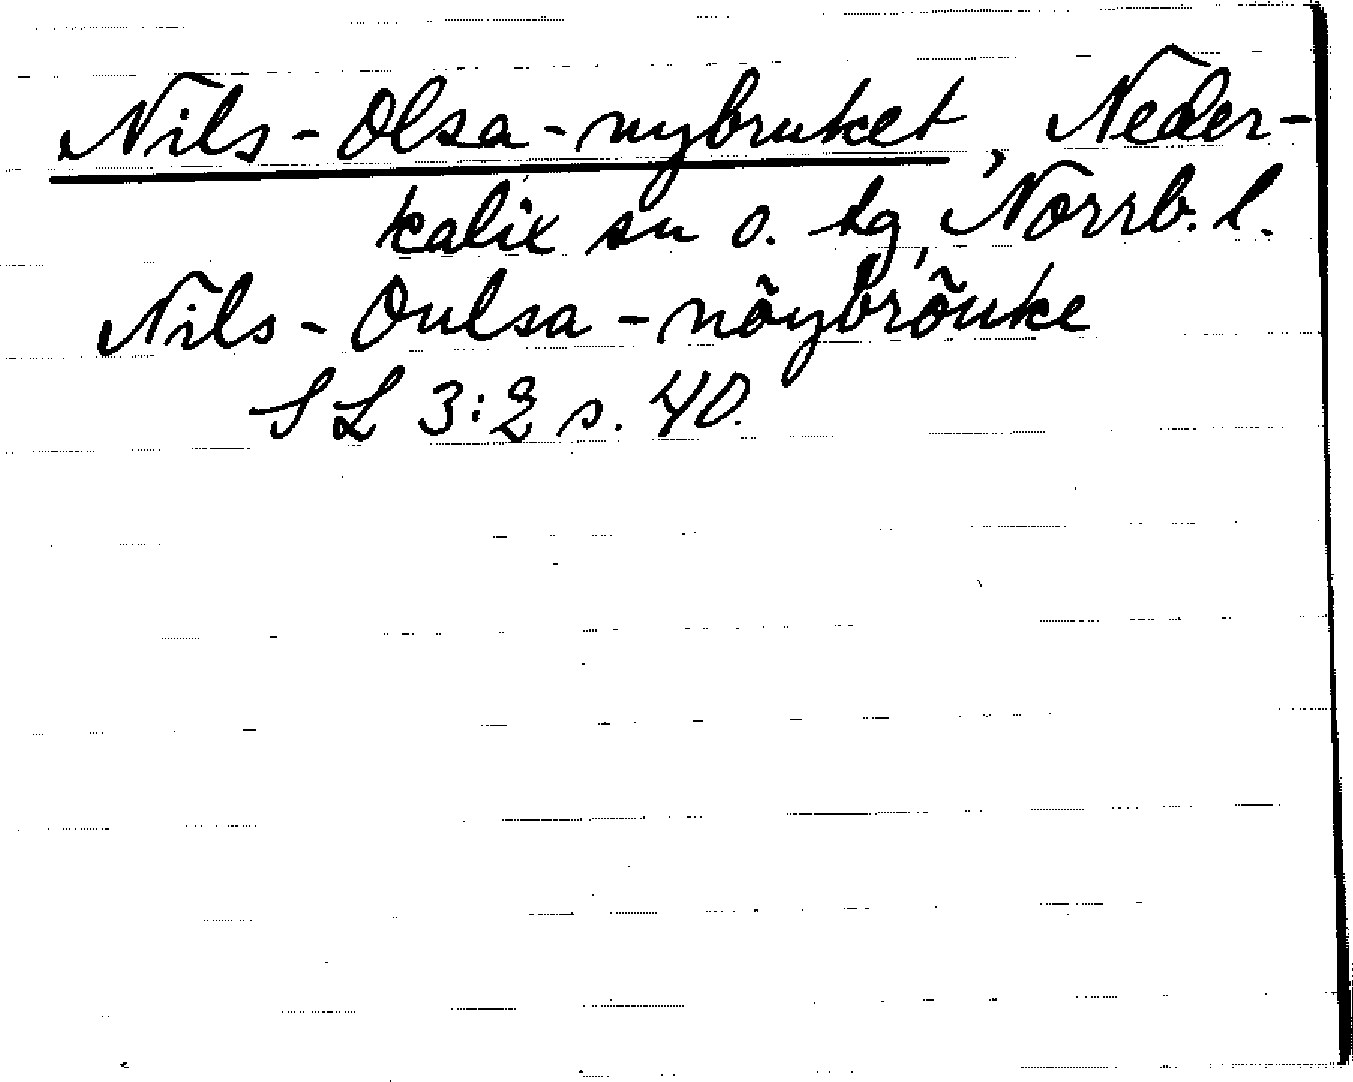 Nils-Olsa-nybruket, Neder-
kalix sn o. hg, Norrb. l.
Nils-Oulsa-nöybröuke
SL 3:2 s. 40.